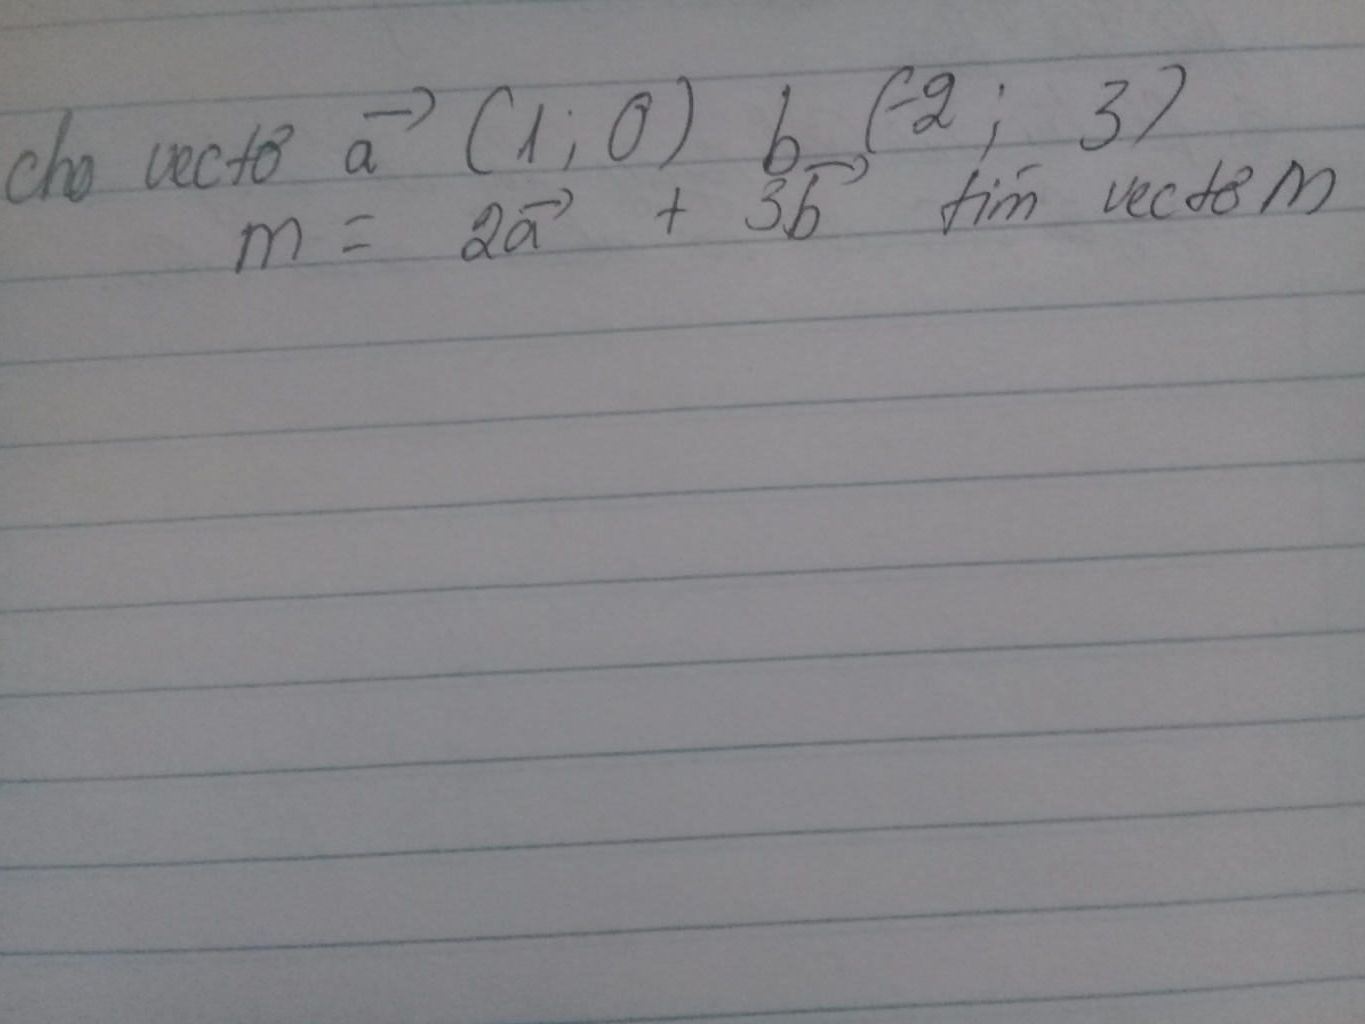 cho vectơ a⃗ (1; 0) b (-2; 3)
m = 2a⃗ + 3b⃗ tìm vectơ m